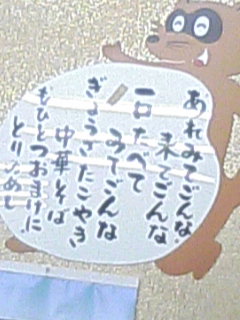 あれみてごんな
来てごんな
一口たべて
みてごんな
ぎょうざたこやき
中華そば
もひとつおまけに
とりごめし